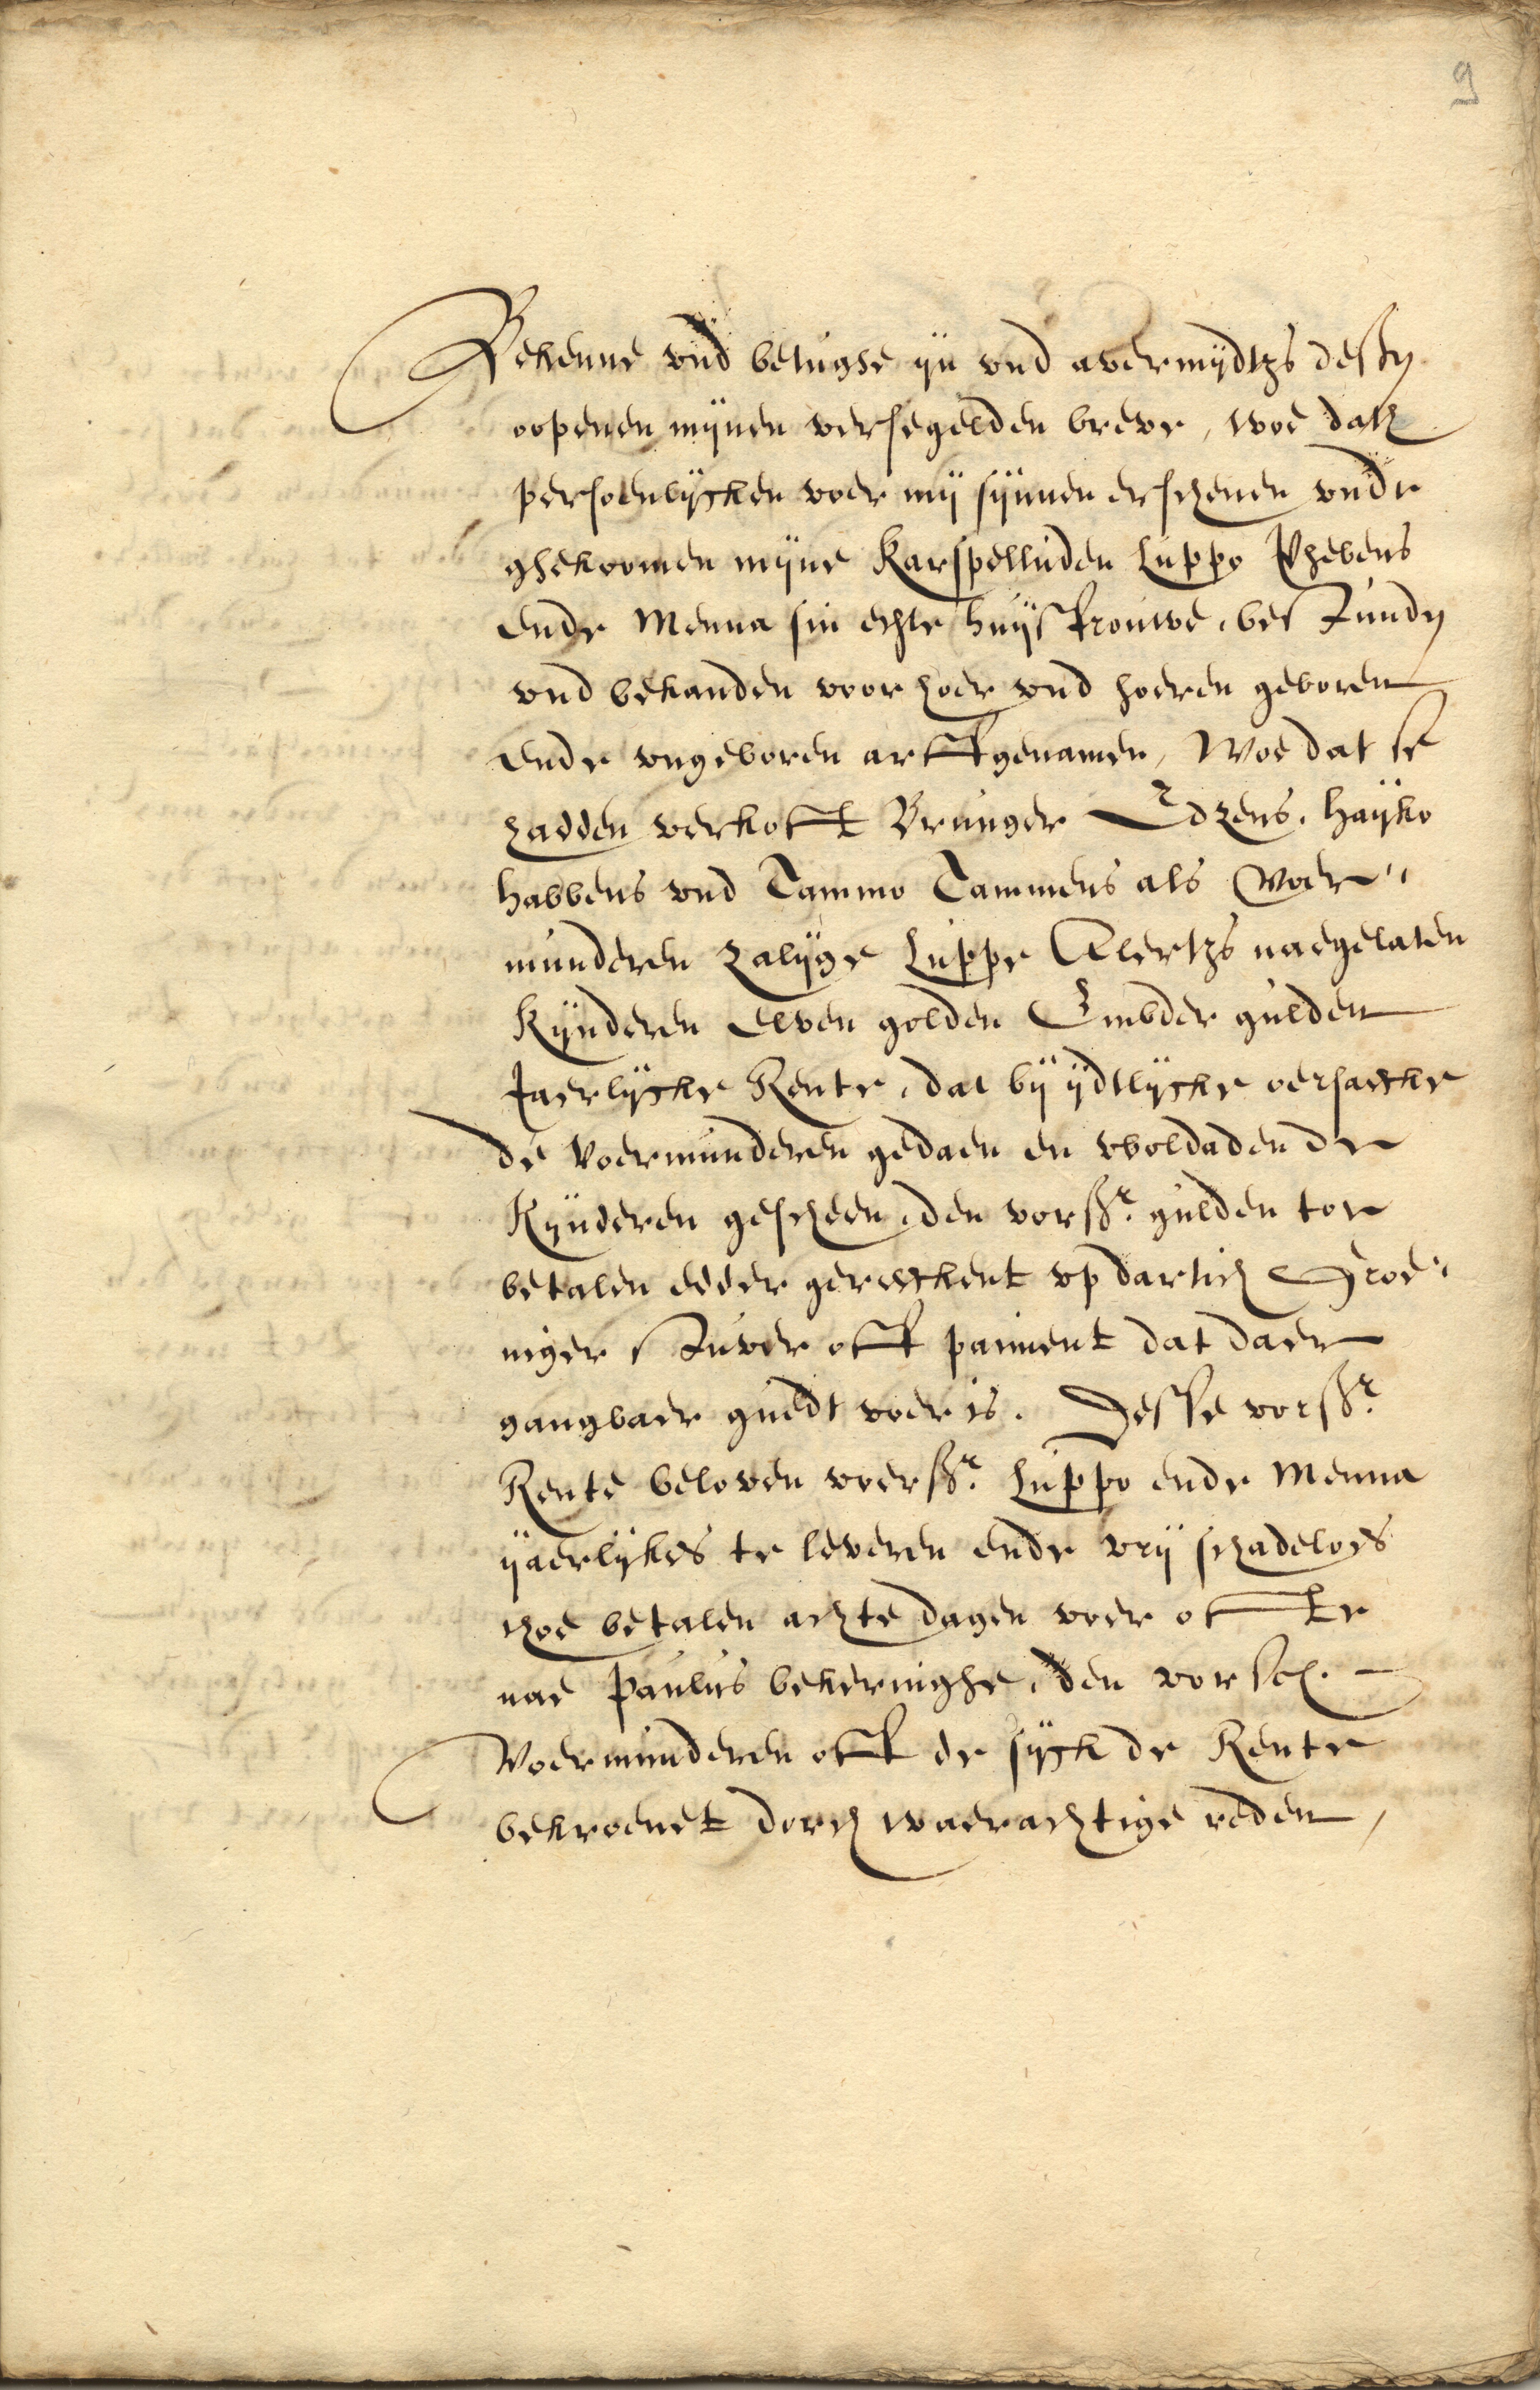 9
Bekenne vnd betughe ijn vnd avermijdtzs dessen
oopenen mijnen versegelden breve, woe dath
persoenlijcken voer mij sijnnen erschenen vnde
ghekoomen mijne Karspelluden Luppo Phebens
ende Menna sin echte huijsfrouwe, bestunden
vnd bekanden voor hoer vnd hoeren geboren
ende vngeboren arffgenamen, Woe dat se
hadden verkofft Brunger Edzens, Haijko
Habbens vnd Tammo Tammens als Voer-
munderen zalijge Luppe Alertzs naegelaten
Kijnderen Elven golden Embder gulden
Jaerlijcke Rente, dat bij ijdtlijcke oersaecke
de voermunderen gedaen en woldaden de
Kijnderen gescheen, den vorss.r gulden toe
betalen edder gerecckent vp dartich Groe-
niger Stuver offt paiment dat daer
gangbaer guedt voer is. Desse vorss.r
Rente beloven voerss.r Luppo ende Menna
ijaerlijkes te leveren ende vrij schadeloes
thoe betalen achte dagen voer offte
nae Paulus bekeringhe, den vorsch.
Voermunderen offt de sijck de Rente
bekroenet dorch waerachtige reden,